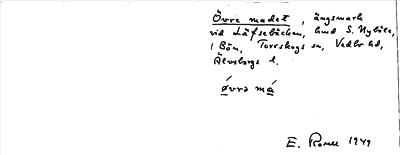 Övre madet, ängsmark
vid Läfsebäcken, hmd S. Nyböle,
1 Bön, Torrskogs sn, Vedbo hd,
Älvsborgs l.
óvrə má
E. 1949